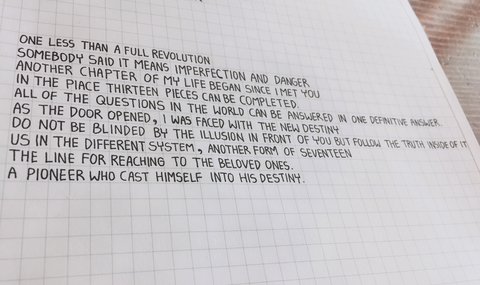 ONE LESS THAN A FULL REVOLUTION
SOMEBODY SAID IT MEANS IMPERFECTION AND DANGER
ANOTHER CHAPTER OF MY LIFE BEGAN SINCE I MET YOU
IN THE PIACE THIRTEEN PIECES CAN BE COMPLETED.
ALL OF THE QUESTIONS IN THE WORLD CAN BE ANSWERED IN ONE DEFINITIVE ANSWER.
AS THE DOOR OPENED, I WAS FACED WITH THE NEW DESTINY
DO NOT BE BLINDED BY THE ILLUSION IN FRONT OF YOU BUT FOLLOW THE TRUTH INSIDE OF IT
US IN THE DIFFERENT SYSTEM, ANOTHER FORM OF SEVENTEEN
THE LINE FOR REACHING TO THE BELOVED ONES.
A PIONEER WHO CAST HIMSELF INTO HIS DESTINY.